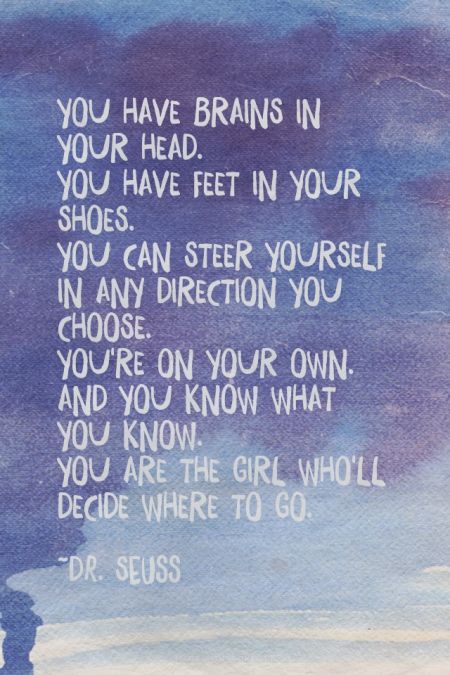 YOU HAVE BRAINS IN
YOUR HEAD.
YOU HAVE FEET IN YOUR
SHOES.
YOU CAN STEER YOURSELF
IN ANY DIRECTION YOU
CHOOSE.
YOU'RE ON YOUR OWN.
AND YOU KNOW WHAT
YOU KNOW.
YOU ARE THE GIRL WHO'LL
DECIDE WHERE TO GO.
~DR. SEUSS